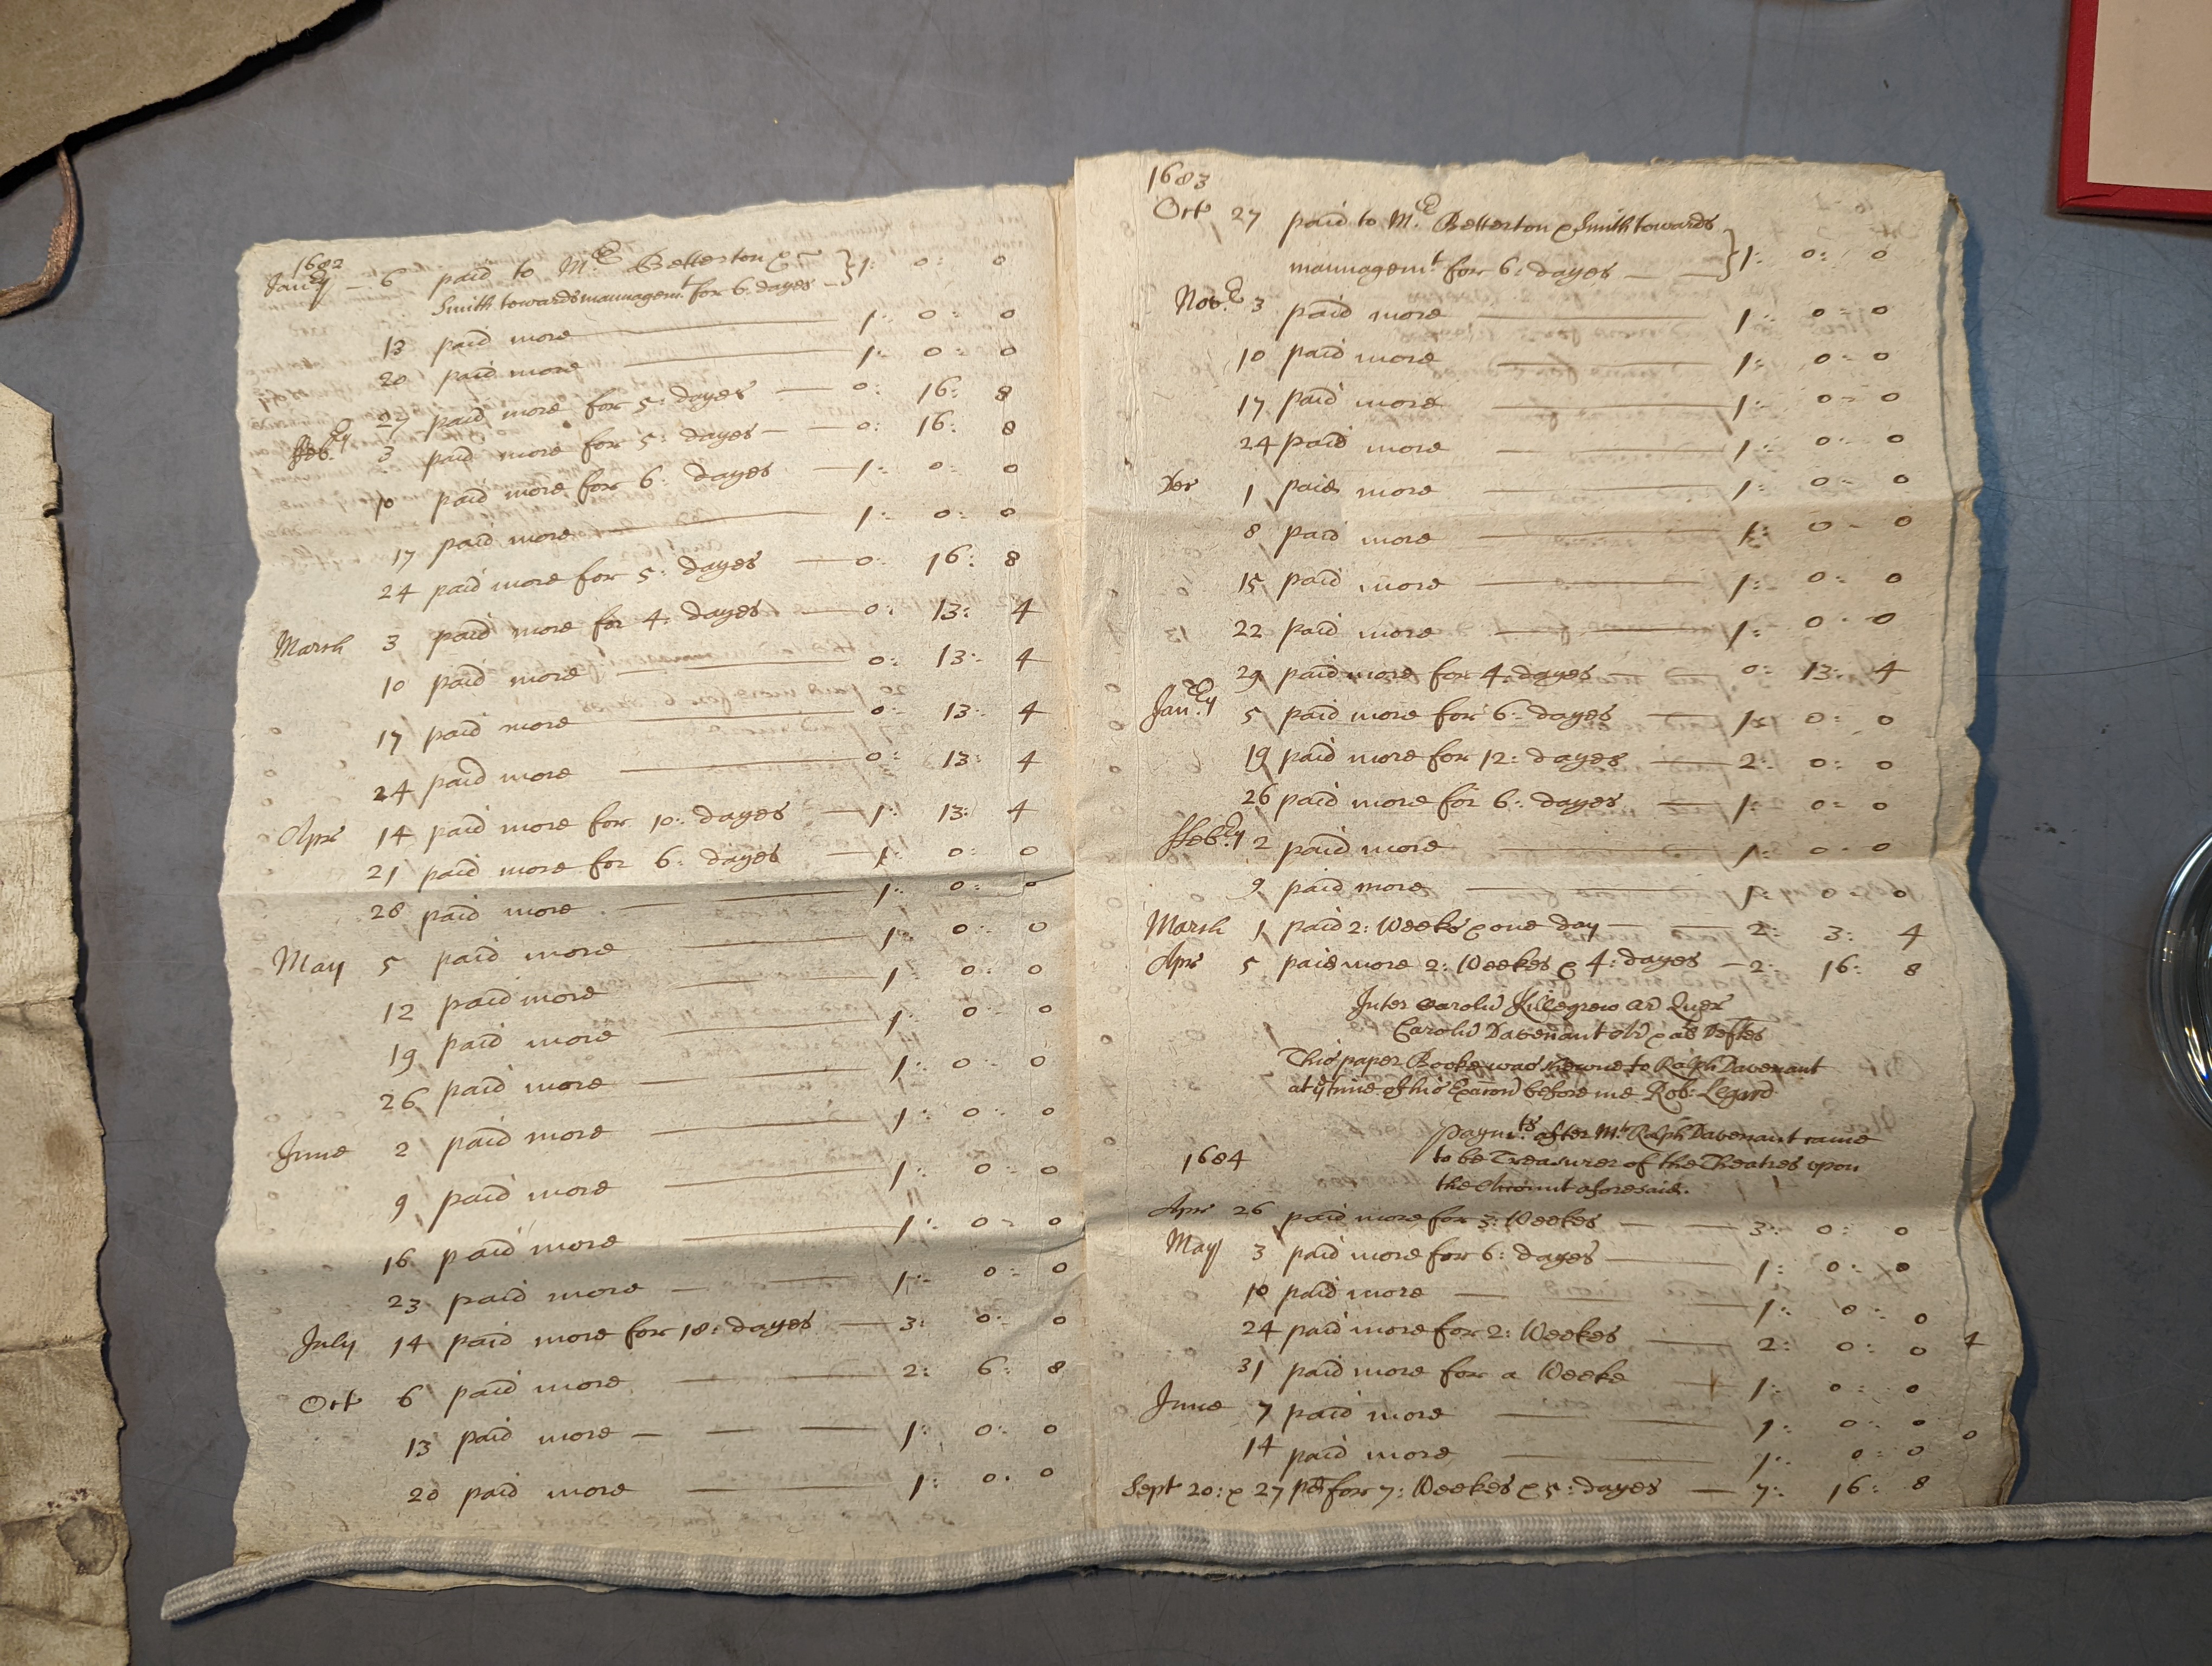 1682
Jan:ry — 6 paid to Mr: Betterton &
Smith towards mannagemt: for 6: dayes — } 1: 0: 0
13 paid more — 1: 0: 0
20 paid more — 1: 0: 0
27 paid more for 5: dayes — 0: 16: 8
ffeb:ry 3 paid more for 5: dayes — 0: 16: 8
10 paid more for 6: dayes — 1: 0: 0
17 paid more — 1: 0: 0
24 paid more for 5: dayes — 0: 16: 8
March 3 paid more for 4: dayes — 0: 13: 4
10 paid more — 0: 13: 4
17 paid more — 0: 13: 4
24 paid more — 0: 13: 4
Apr 14 paid more for 10: dayes — 1: 13: 4
21 paid more for 6: dayes — 1: 0: 0
28 paid more — 1: 0: 0
May 5 paid more — 1: 0: 0
12 paid more — 1: 0: 0
19 paid more — 1: 0: 0
26 paid more — 1: 0: 0
June 2 paid more — 1: 0: 0
9 paid more — 1: 0: 0
16 paid more — 1: 0: 0
23 paid more — 1: 0: 0
July 14 paid more for 18: dayes — 3: 0: 0
Oct 6 paid more — 2: 6: 8
13 paid more — 1: 0: 0
20 paid more — 1: 0: 0
1683
Oct 27 paid to Mr: Betterton & Smith towards
mannagemt: for 6: dayes — } 1: 0: 0
Nov:r 3 paid more — 1: 0: 0
10 paid more — 1: 0: 0
17 paid more — 1: 0: 0
24 paid more — 1: 0: 0
Dec 1 paid more — 1: 0: 0
8 paid more — 1: 0: 0
15 paid more — 1: 0: 0
22 paid more — 1: 0: 0
29 paid more for 4: dayes — 0: 13: 4
Jan:ry 5 paid more for 6: dayes — 1: 0: 0
19 paid more for 12: dayes — 2: 0: 0
26 paid more for 6: dayes — 1: 0: 0
ffeb:ry 2 paid more — 1: 0: 0
9 paid more — 1: 0: 0
March 1 paid 2: Weeks & one day — 2: 3: 4
Apr 5 paid more 2: Weekes & 4: dayes — 2: 16: 8
Inter Carolu Killegrew Ar Quer
Carolu Davenant & al Deftes
This paper Booke was shewne to Ralph Davenant
at ye time of his Exacon before me Rob: Legard
1684
Paymts: after Mr: Ralph Davenant came
to be Treasurer of the Theatres upon
the Account aforesaid.
Apr 26 paid more for 3: Weekes — 3: 0: 0
May 3 paid more for 6: dayes — 1: 0: 0
10 paid more — 1: 0: 0
24 paid more for 2: Weekes — 2: 0: 0
31 paid more for a Weeke — 1: 0: 0
June 7 paid more — 1: 0: 0
14 paid more — 1: 0: 0
Sept 20: & 27 pd for 7: Weekes & 5: dayes — 7: 16: 8